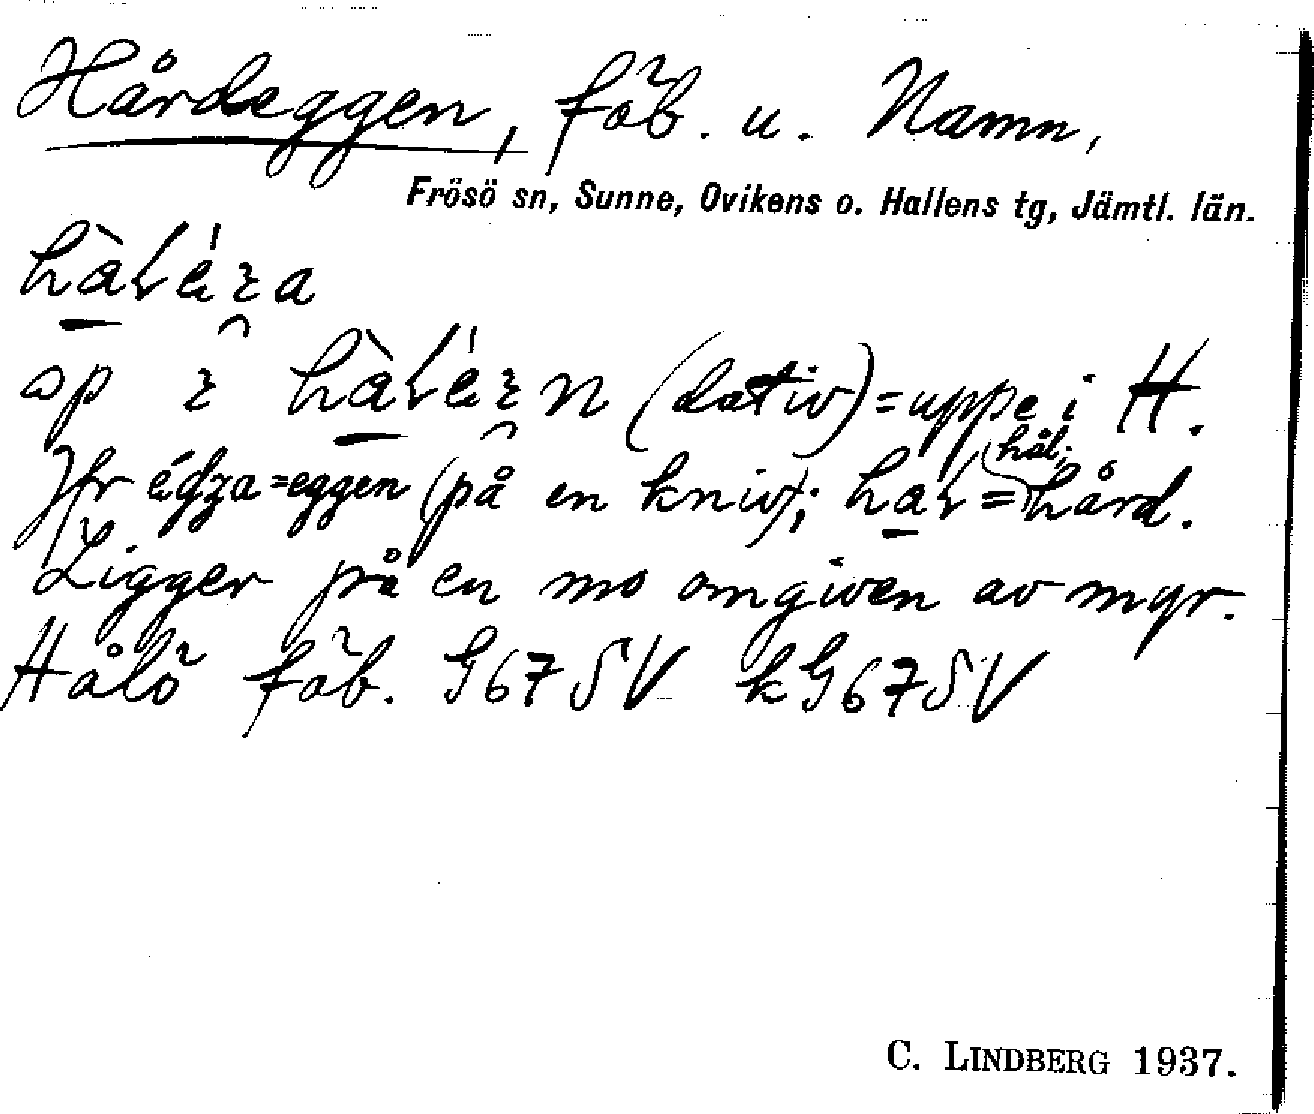 Hårdeggen, fäb. u. Namn,
Frösö sn, Sunne, Ovikens o. Hallens tg, Jämtl. län.
(dativ) = uppe i H.
Jfr = eggen (på en kniv); = hård.
hål;
Ligger på en mo omgiven av myr.
Hålö fäb. G67SV kG67SV
C. LINDBERG 1937.